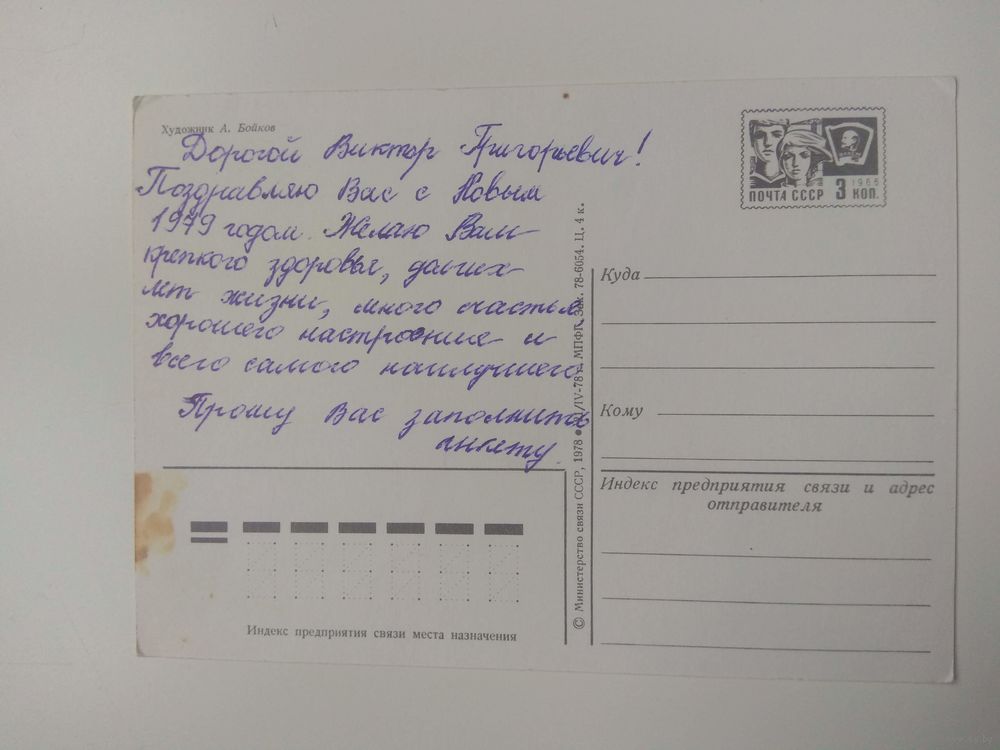 Художник А. Бойков
Дорогой Виктор Григорьевич!
Поздравляю Вас с Новым
1979 годом. Желаю Вам
крепкого здоровья, долгих
лет жизни, много счастья,
хорошего настроение и
всего самого наилучшего.
Прошу Вас заполнить
анкету.
Индекс предприятия связи места назначения
© Министерство связи СССР, 1978 • /IV-78 г. МПФГ. Зак. 78-6054. Ц. 4 к.
1966
ПОЧТА СССР 3 КОП.
Куда
Кому
Индекс предприятия связи и адрес
отправителя